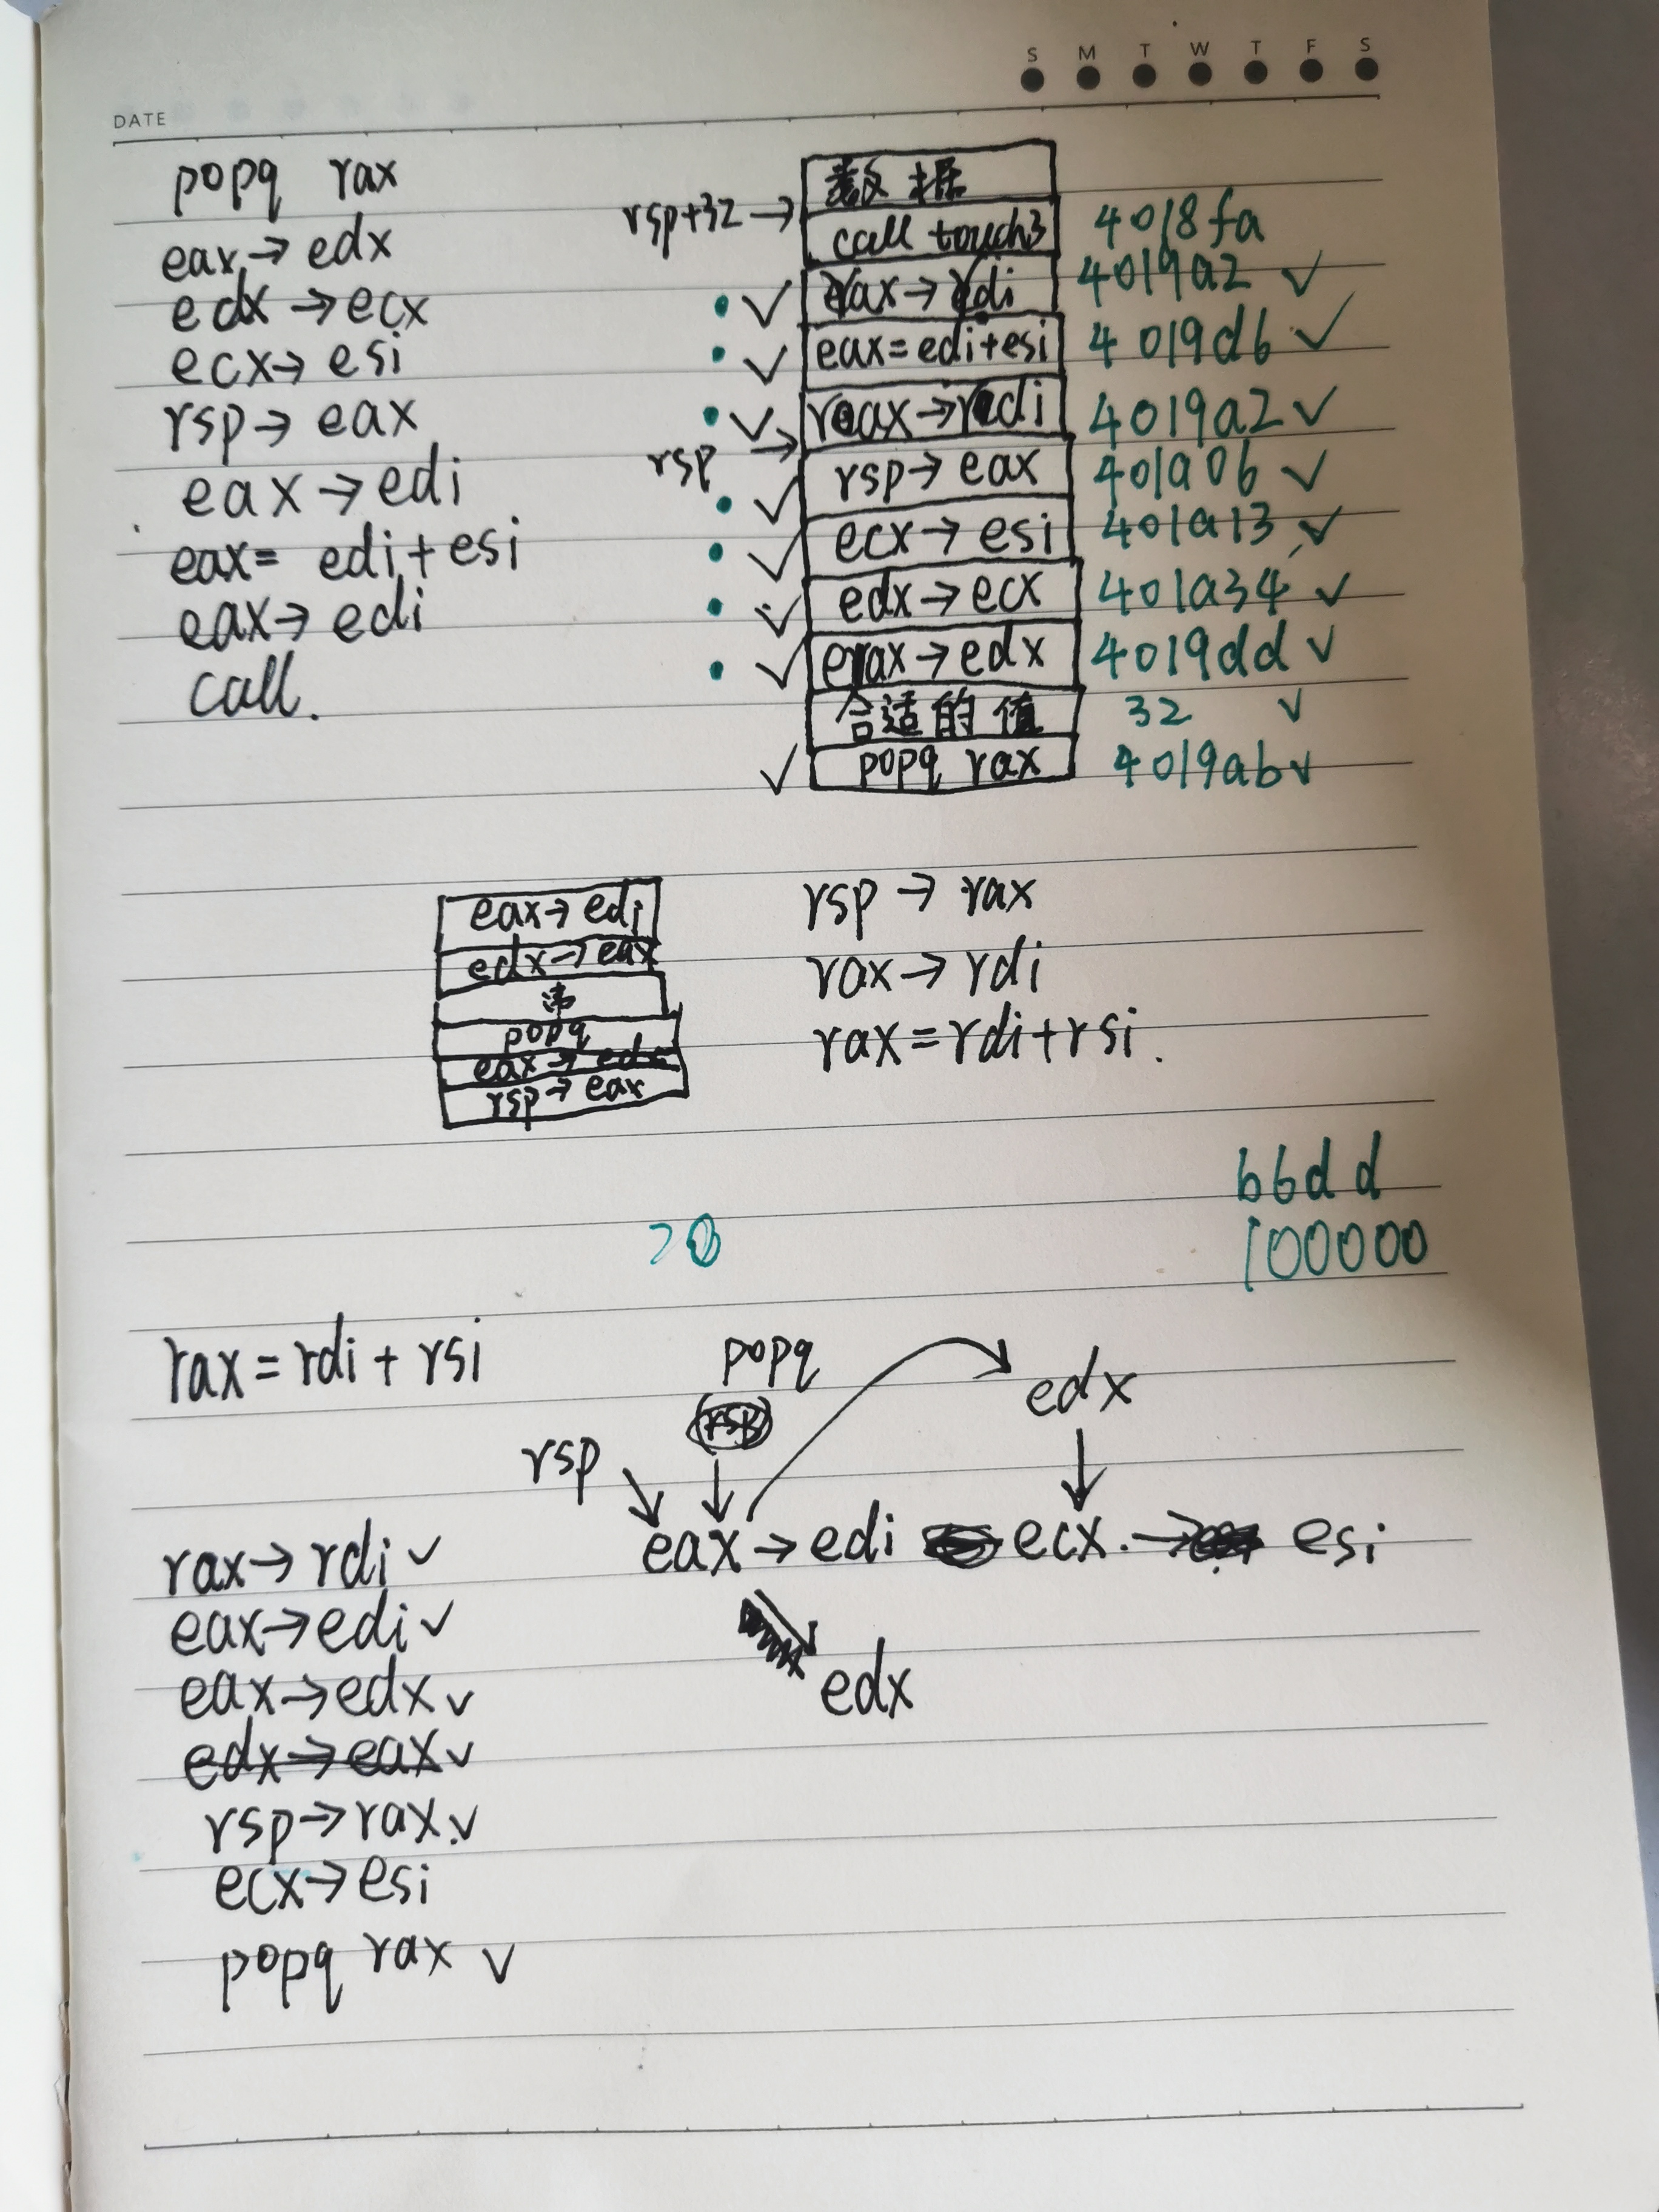 S M T W T F S
DATE
popq rax
eax→edx
edx→ecx
ecx→esi
rsp→eax
eax→edi
eax= edi+esi
eax→edi
call.
数据
rsp+32→ call touch3 4018fa
✓ rax→rdi 4019a2 ✓
✓ eax=edi+esi 4019d6 ✓
✓ rax→rdi 4019a2 ✓
rsp →
✓ rsp→eax 401a06 ✓
✓ ecx→esi 401a13 ✓
✓ edx→ecx 401a34 ✓
✓ eax→edx 4019dd ✓
合适的值 32 ✓
✓ popq rax 4019ab ✓
eax→edi
edx→eax
popq
eax→edx
rsp→eax
rsp→rax
rax→rdi
rax=rdi+rsi.
b6dd
100000
rax=rdi+rsi
popq
edx
rsp
eax→edi ecx.→ esi
edx
rax→rdi ✓
eax→edi ✓
eax→edx ✓
edx→eax ✓
rsp→rax. ✓
ecx→esi
popq rax ✓